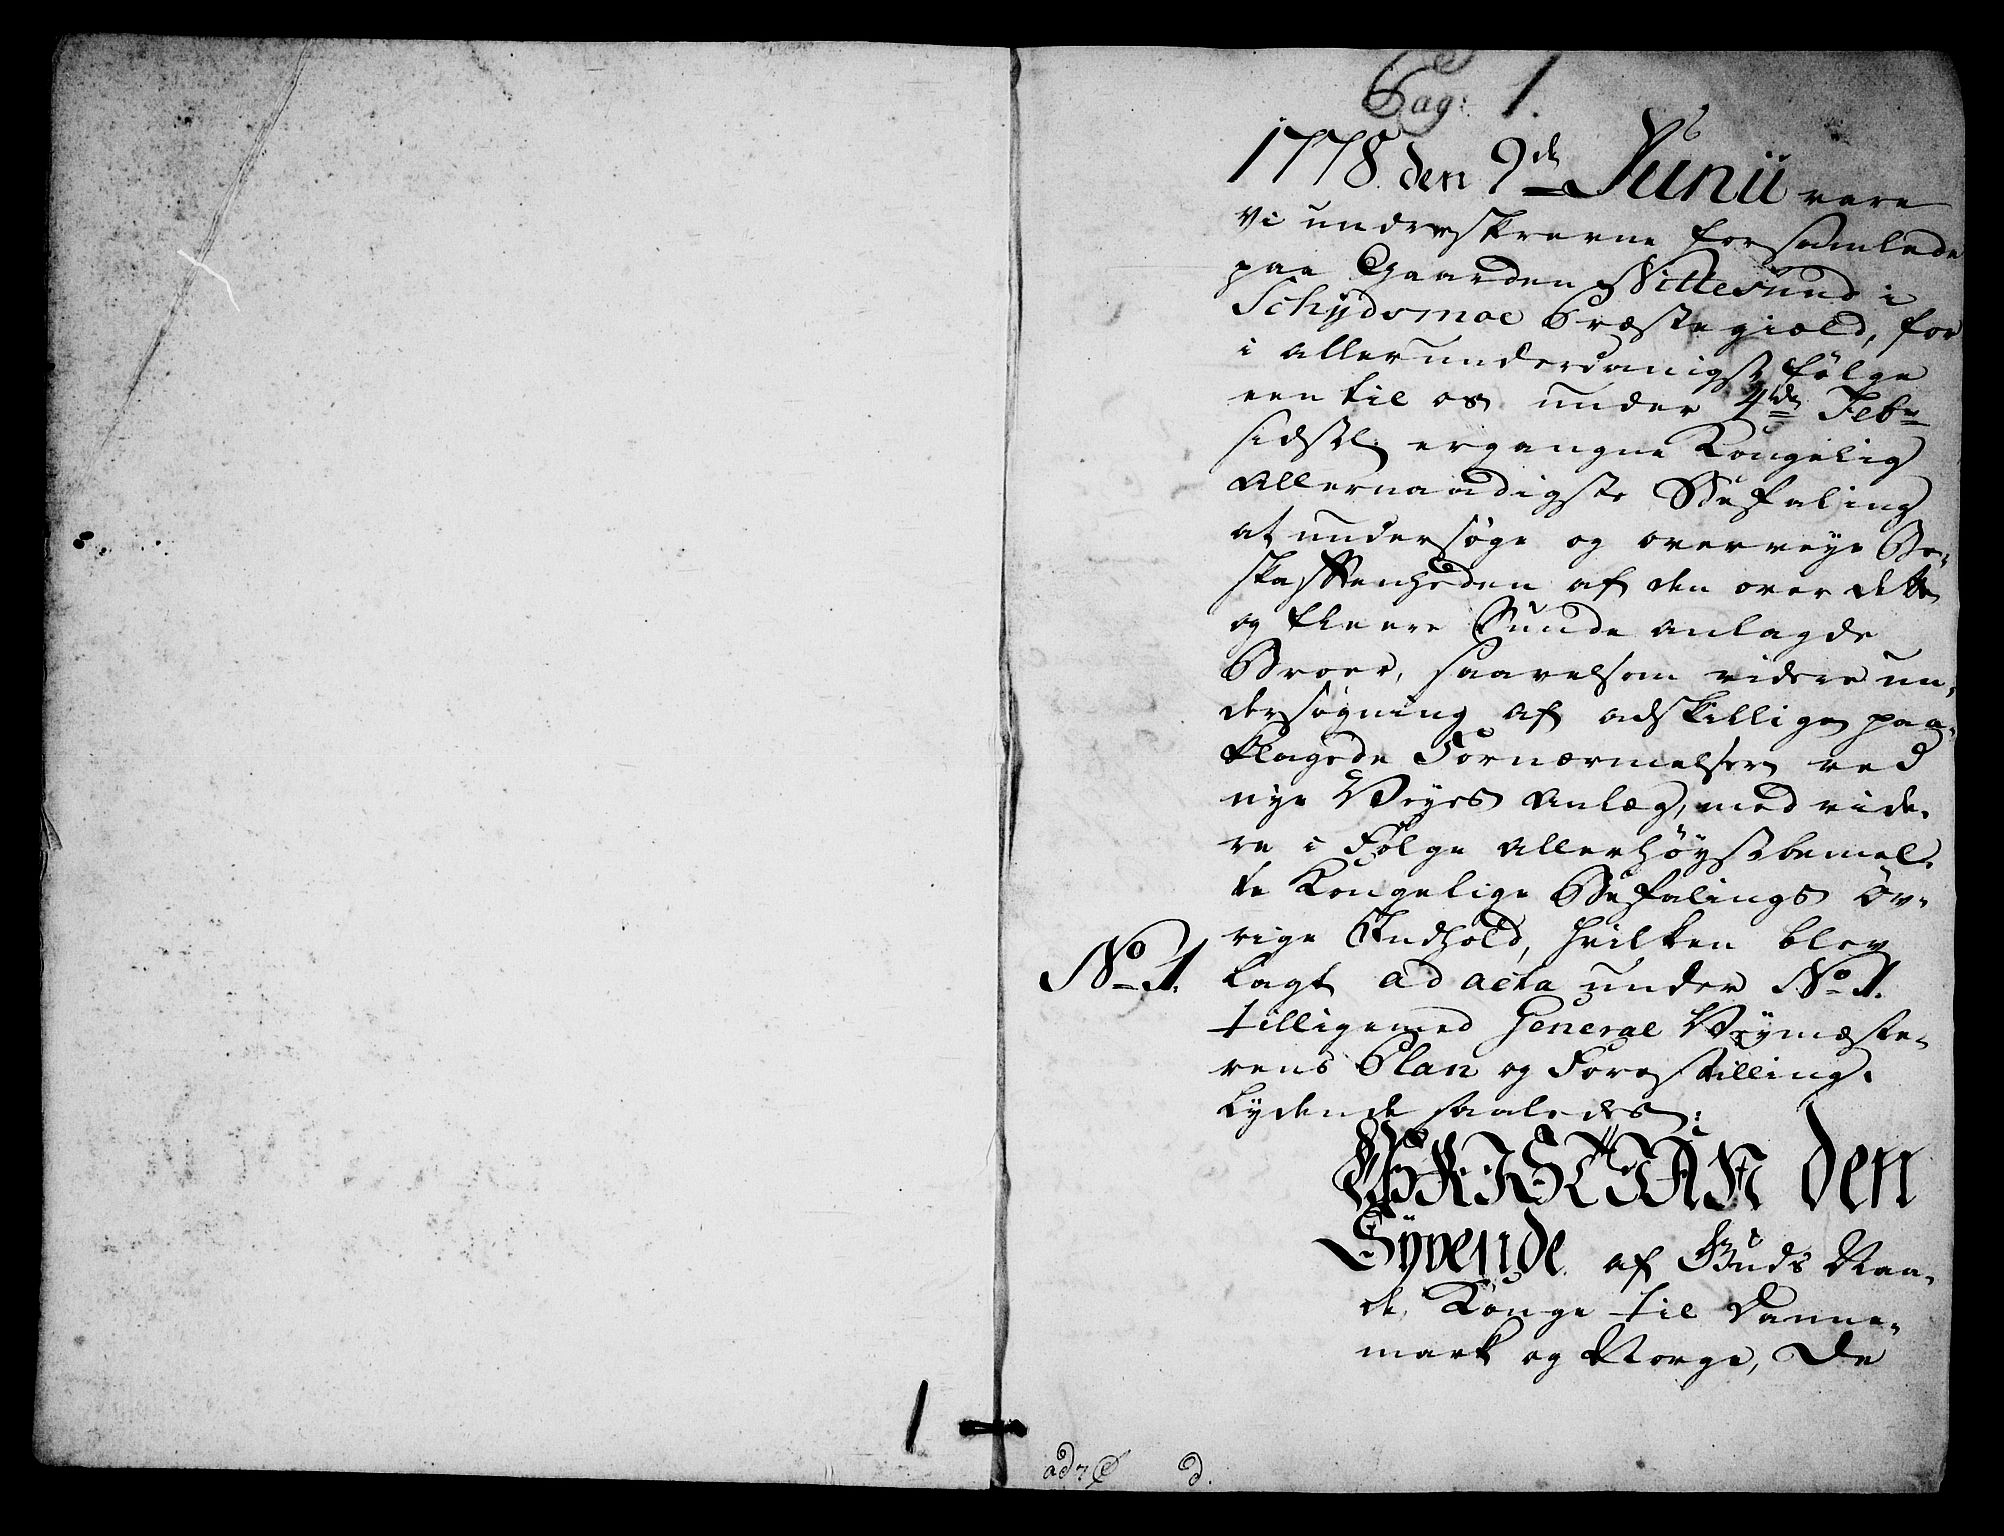 Pag: 1.
1778. den 9de Junii vare
vi underskrevne forsamlede
paa Gaarden Nittesund i
Schydsmoe Præstegield, for
i allerunderdanigst følge
een til os under 4de Febr
sidstl. ergangne Kongelig
Allernaadigste Befaling
at undersøge og overveye Be-
skaffenheden af den over dette
og fleere Sunde anlagde
Broer, saavelsom videre un-
dersøgning af adskillige paa-
klagede Fornærmelser ved
nye Veyes Anlæg, med vide-
re i Følge allerhøystbemel-
te Kongelige Befalings øv-
rige Indhold, hvilken blev
No 1. lagt ad acta under No 1.
tilligemed General Veymæste-
rens Plan og Forestilling.
lydende saaledes:
CHRISTIAN den
Syvende af Guds Naa-
de, Konge til Danne-
mark og Norge, De
1